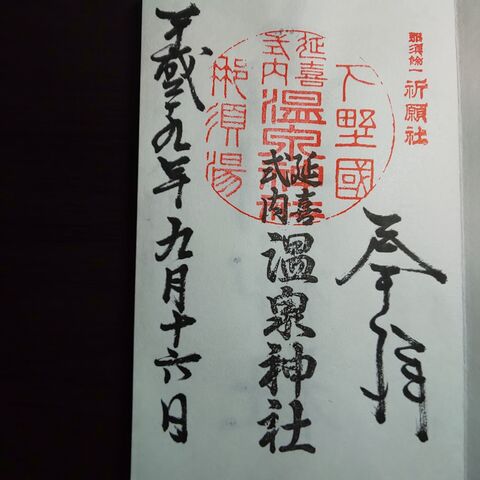 那須餘一
祈願社
奉拝
下野國
延喜
式内
温泉神社
那須湯
延喜
式内
温泉神社
平成二九年九月十六日